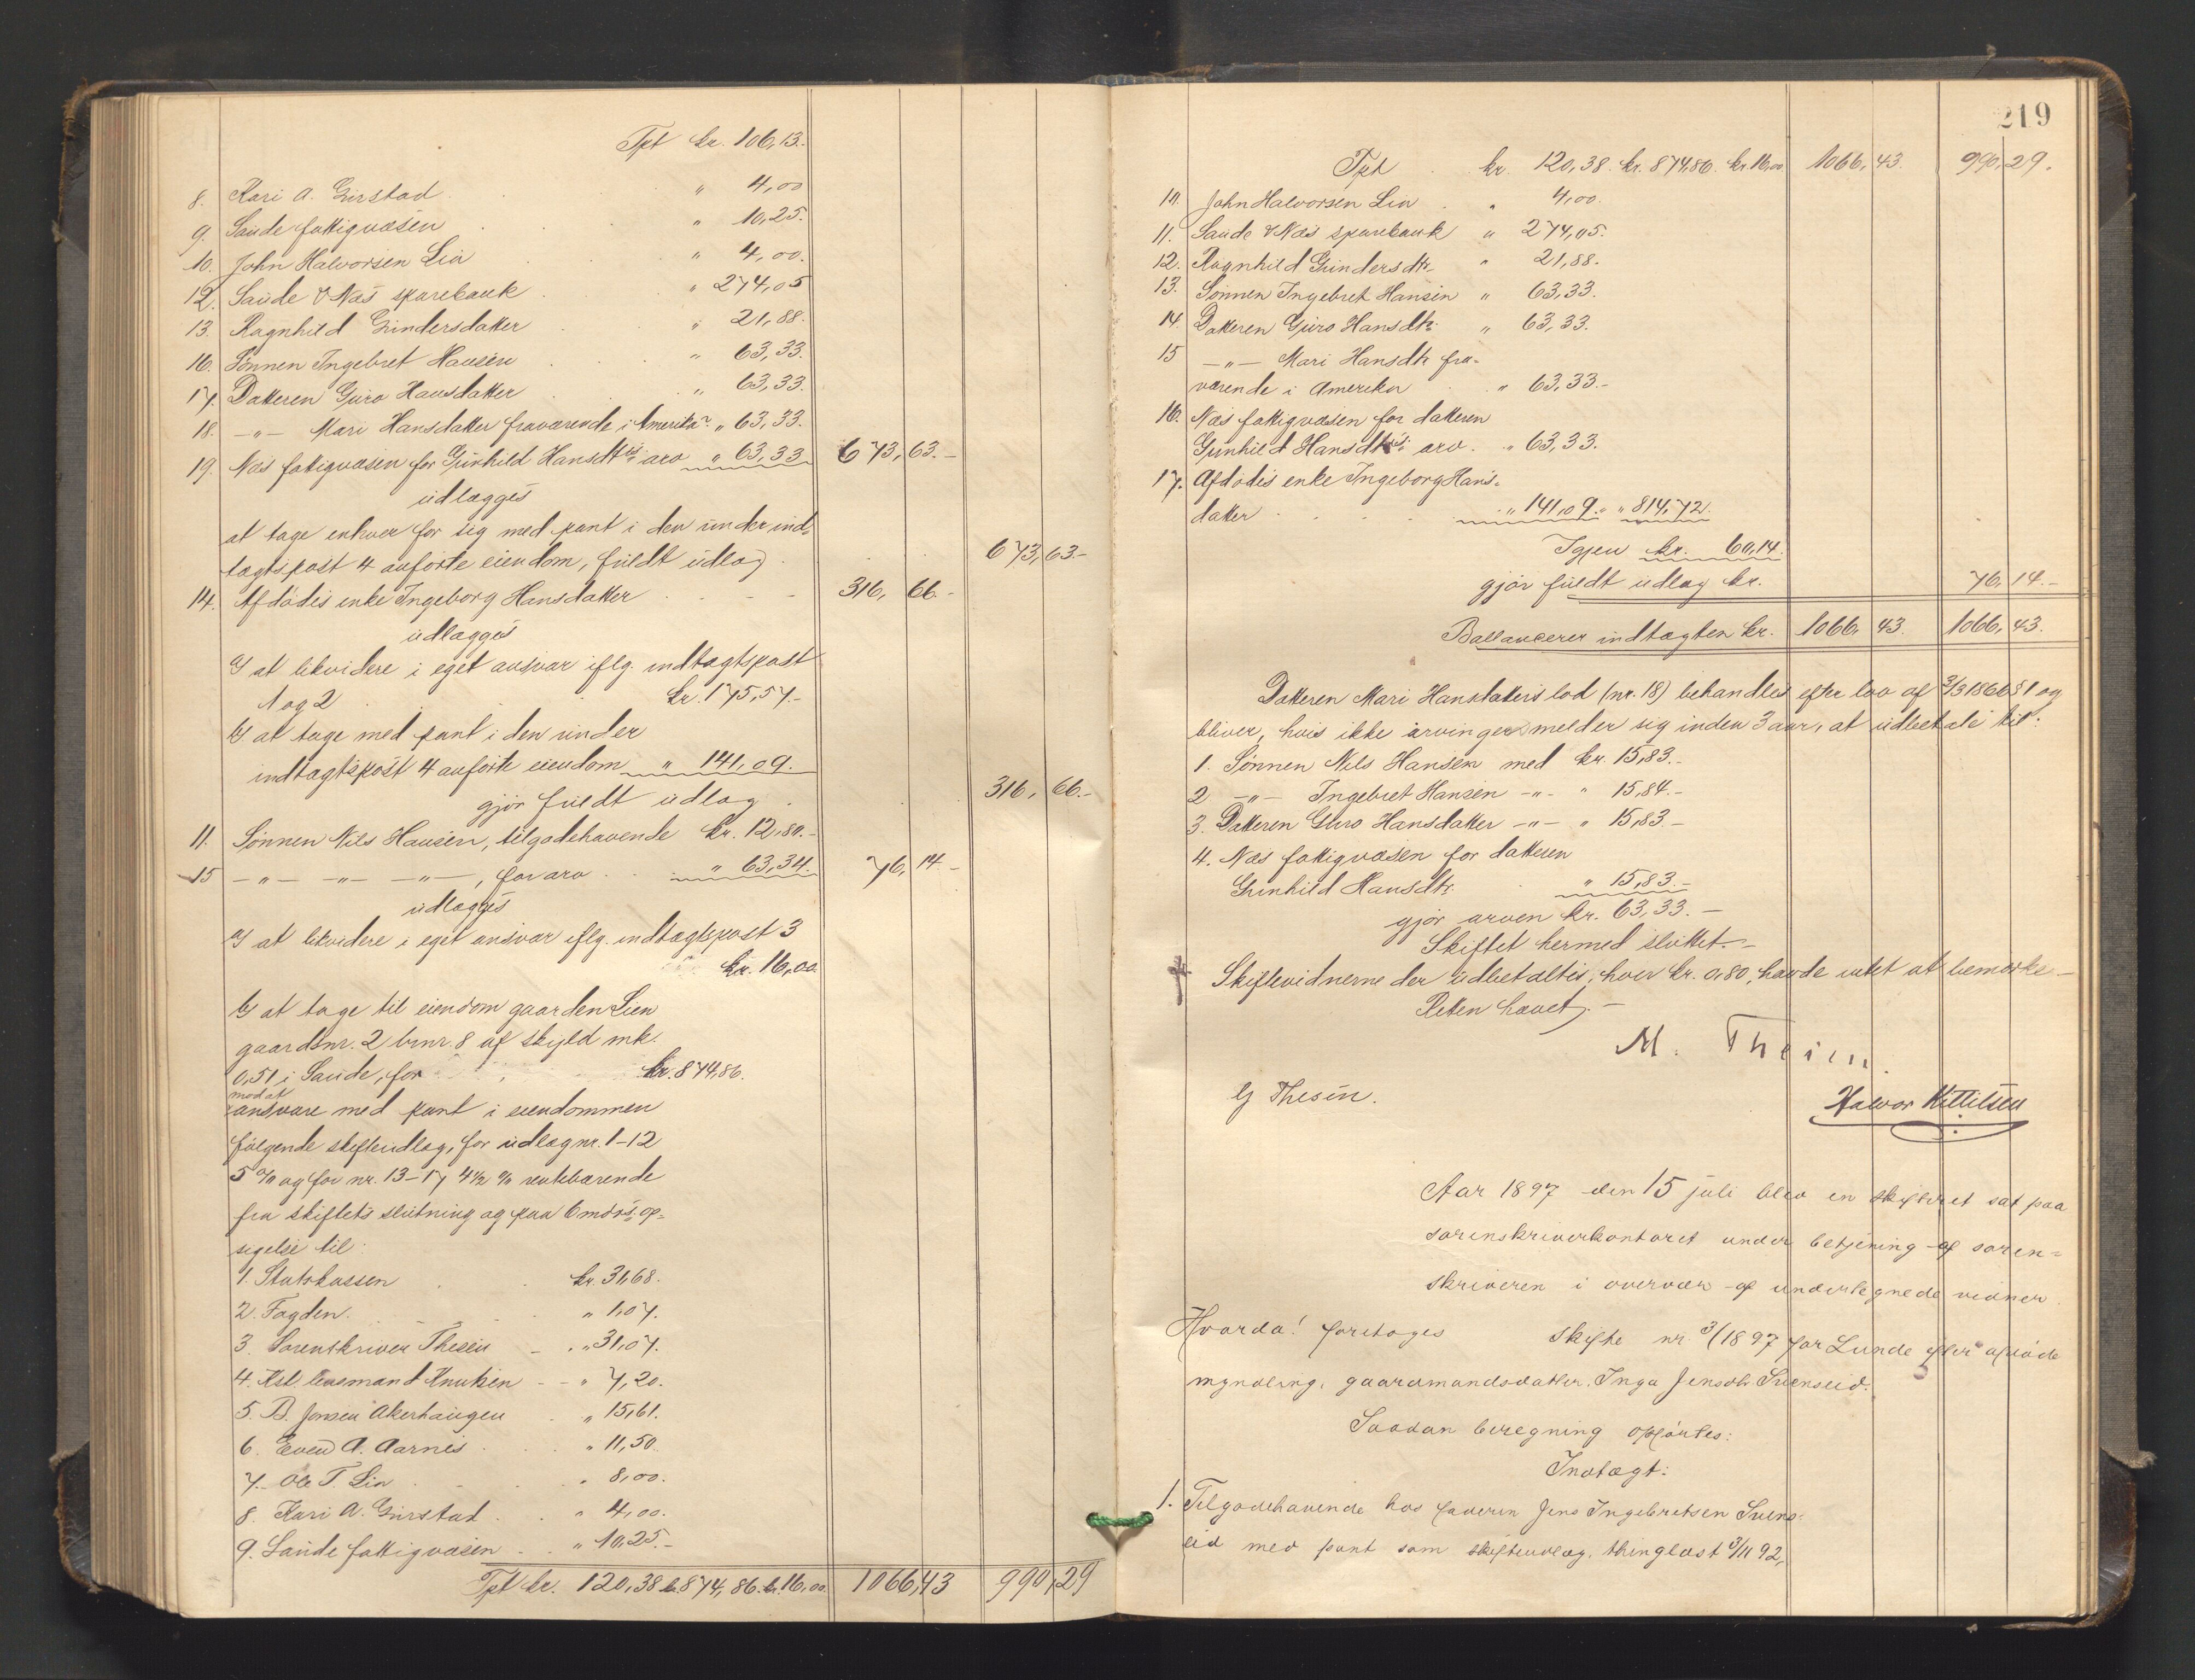 Tpt kr. 106,13.
8. Kari A. Girstad " 4,00
9. Saude fattigvæsen " 10,25.
10. John Halvorsen Lia " 4,00.
12. Saude & Næs sparebank " 274,05
13. Ragnhild Gundersdatter " 21,88.
16. Sønnen Ingebret Hansen " 63,33.
17. Datteren Guro Hansdatter " 63,33.
18. -"- Mari Hansdatter fraværende i Amerika " 63,33.
19. Næs fattigvæsen for Gunhild Hansdtrs arv " 63,33 673,63.-
udlægges
at tage enhver for sig med pant i den under ind-
tægtspost 4 anførte eiendom, fuldt udlæg 673,63.-
14. Afdødes enke Ingeborg Hansdatter 316,66.-
udlægges
a) at likvidere i eget ansvar iflg. indtægtspost
1 og 2 kr. 175,57.-
b) at tage med pant i den under
indtægtspost 4 anførte eiendom " 141,09.
gjør fuldt udlæg 316,66.-
11. Sønnen Nils Hansen, tilgodehavende kr. 12,80.-
15 -"- -"- -"-, for arv " 63,34. 76,14.-
udlægges
a) at likvidere i eget ansvar iflg. indtægtspost 3
kr. 16,00.
b) at tage til eiendom gaarden Lien
gaardsnr. 2 brnr. 8 af skyld mk.
0,51 i Saude, for kr. 874,86.
mod at
ansvare med pant i eiendommen
følgende skifteudlæg, for udlæg nr. 1-12
5 % og for nr. 13-17 4½ % rentebærende
fra skiftets slutning og paa 6 mdrs. op-
sigelse til:
1. Statskassen kr. 31,68.
2. Fogden " 1,07.
3. Sorenskriver Thesen " 31,07.
4. Kst. lensmand Knutsen " 7,20.
5. B. Jonsen Akerhaugen " 15,61.
6. Even A. Aarnes " 11,50
7. Ole T. Lia " 8,00.
8. Kari A. Girstad " 4,00.
9. Saude fattigvæsen " 10,25.-
Tpt kr. 120,38 kr. 874,86. kr. 16,00 1066,43 990,29
219
Tpt kr. 120,38. kr. 874,86. kr. 16,00 1066,43. 990,29.
10. John Halvorsen Lia " 4,00.
11. Saude & Næs sparebank " 274,05.
12. Ragnhild Gundersdtr " 21,88.
13. Sønnen Ingebret Hansen " 63,33.
14. Datteren Guro Hansdtr. " 63,33.
15 -"- Mari Hansdtr fra-
værende i Amerika " 63,33.-
16. Næs fattigvæsen for datteren
Gunhild Hansdtrs. arv. " 63,33.
17. Afdødes enke Ingeborg Hans-
datter " 141,09. " 814,72.
Igjen kr. 60,14.
gjør fuldt udlæg kr. 76,14.-
Ballancerer indtægten kr. 1066,43. 1066,43.
Datteren Mari Hansdatters lod (nr. 18) behandles efter lov af 3/3 1860 § 1 og
bliver, hvis ikke arvinger melder sig inden 3 aar, at udbetale til:
1. Sønnen Nils Hansen med kr. 15,83.-
2 -"- Ingebret Hansen -"- " 15,84.-
3. Datteren Guro Hansdatter -"- " 15,83.-
4. Næs fattigvæsen for datteren
Gunhild Hansdtr. " 15,83.-
gjør arven kr. 63,33.-
Skiftet hermed sluttet.-
Skiftevidnerne der udbetaltes, hver kr. 0,80, havde intet at bemærke.-
Retten hævet.-
M. Thesen.
G Thesen.
Halvor Kittilsen
Aar 1897 den 15 juli blev en skifteret sat paa
sorenskriverkontoret under betjening af soren-
skriveren i overvær af undertegnede vidner
Hvorda! foretoges skifte nr 3/1897 for Lunde efter afdøde
myndling, gaardmandsdatter, Inga Jensdtr Svenseid.
Saadan beregning opførtes:
Indtægt:
1. Tilgodehavende hos faderen Jens Ingebretsen Svens-
eid med pant som skifteudlæg, thinglæst 3/11 92,